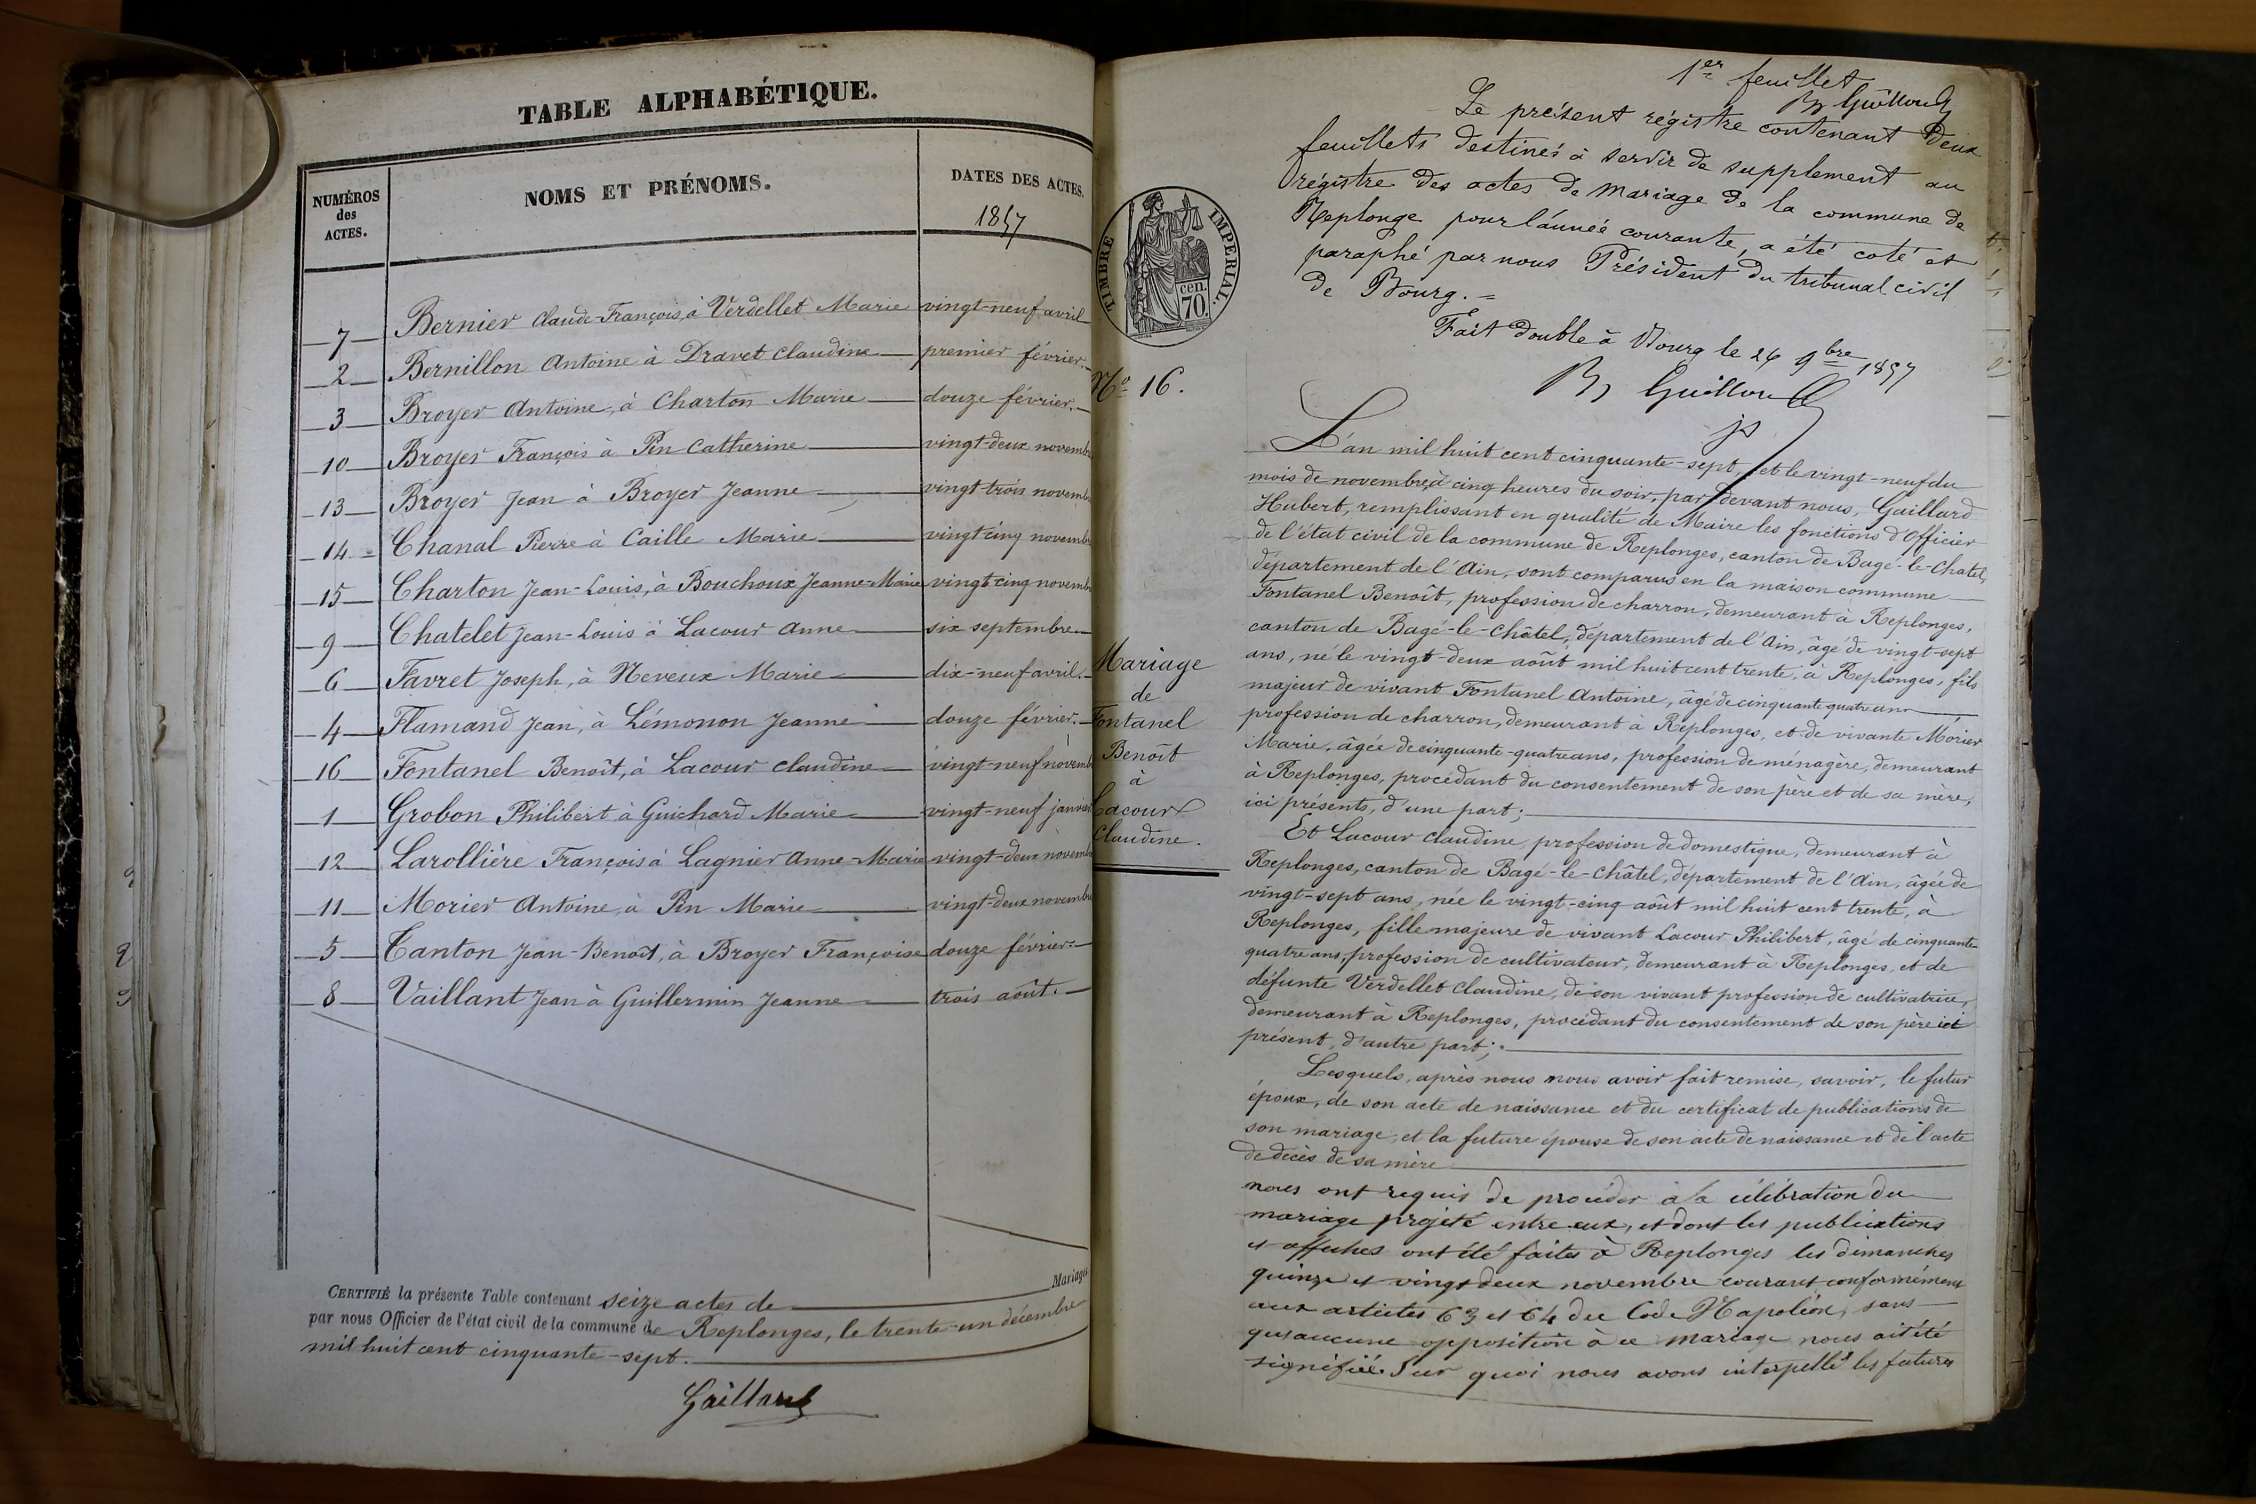 TABLE ALPHABÉTIQUE.
NUMÉROS des ACTES.
NOMS ET PRÉNOMS.
DATES DES ACTES.
1857
7 Bernier Claude-François, à Verdellet Marie vingt-neuf avril
2 Bernillon Antoine à Dravet Claudine premier février.
3 Broyer Antoine, à Charton Marie douze février.
10 Broyer François à Pin Catherine vingt-deux novemb
13 Broyer Jean à Broyer Jeanne vingt-trois novemb
14 Chanal Pierre à Caille Marie vingt-cinq novemb
15 Charton Jean-Louis, à Bouchoux Jeanne-Marie vingt-cinq novemb
9 Chatelet Jean-Louis à Lacour Anne six septembre
6 Favret Joseph, à Neveux Marie dix-neuf avril.
4 Flamand Jean, à Lémonon Jeanne douze février.
16 Fontanel Benoît, à Lacour Claudine vingt-neuf novemb
1 Grobon Philibert à Guichard Marie vingt-neuf janvier
12 Larollière François à Lagnier Anne-Marie vingt-deux novemb
11 Morier Antoine, à Pin Marie vingt-deux novemb
5 Canton Jean-Benoît, à Broyer Françoise douze février.
8 Vaillant Jean à Guillermin Jeanne trois août.
CERTIFIÉ la présente Table contenant seize actes de Mariages
par nous Officier de l'état civil de la commune de Replonges, le trente-un décembre
mil huit cent cinquante-sept.
Gaillard
1er feuillet
By Guillon
Le présent régistre contenant deux
feuillets destinés à servir de supplement au
régistre des actes de Mariage de la commune de
Replonge pour l'année courante, a été coté et
paraphé par nous Président du tribunal civil
de Bourg. =
Fait double à Bourg le 26 9bre 1857
By Guillon
TIMBRE IMPÉRIAL.
70 cen.
No 16.
Mariage
de
Fontanel
Benoît
à
Lacour
Claudine.
L'an mil huit cent cinquante-sept, et le vingt-neuf du
mois de novembre, à cinq heures du soir, par devant nous, Gaillard
Hubert, remplissant en qualité de Maire les fonctions d'Officier
de l'état civil de la commune de Replonges, canton de Bagé-le-Chatel,
département de l'Ain, sont comparus en la maison commune
Fontanel Benoît, profession de charron, demeurant à Replonges,
canton de Bagé-le-Châtel, département de l'Ain, âgé de vingt-sept
ans, né le vingt-deux août mil huit cent trente, à Replonges, fils
majeur de vivant Fontanel Antoine, âgé de cinquante quatre ans
profession de charron, demeurant à Replonges, et de vivante Morier
Marie, âgée de cinquante-quatre ans, profession de ménagère, demeurant
à Replonges, procédant du consentement de son père et de sa mère,
ici présents, d'une part;
Et Lacour Claudine, profession de domestique, demeurant à
Replonges, canton de Bagé-le-Châtel, département de l'Ain, âgée de
vingt-sept ans, née le vingt-cinq août mil huit cent trente, à
Replonges, fille majeure de vivant Lacour Philibert, âgé de cinquante-
quatre ans, profession de cultivateur, demeurant à Replonges, et de
défunte Verdellet Claudine, de son vivant profession de cultivatrice,
demeurant à Replonges, procédant du consentement de son père ici
présent, d'autre part;
Lesquels, après nous nous avoir fait remise, savoir, le futur
époux, de son acte de naissance et du certificat de publications de
son mariage, et la future épouse de son acte de naissance et de l'acte
de décès de sa mère
nous ont requis de procéder à la célébration du
mariage projeté entre eux, et dont les publications
et affiches ont été faites à Replonges les dimanches
quinze et vingt deux novembre courant conformément
aux articles 63 et 64 du Code Napoléon, sans
qu'aucune opposition à ce mariage nous ait été
signifiée. Sur quoi nous avons interpellé les futurs